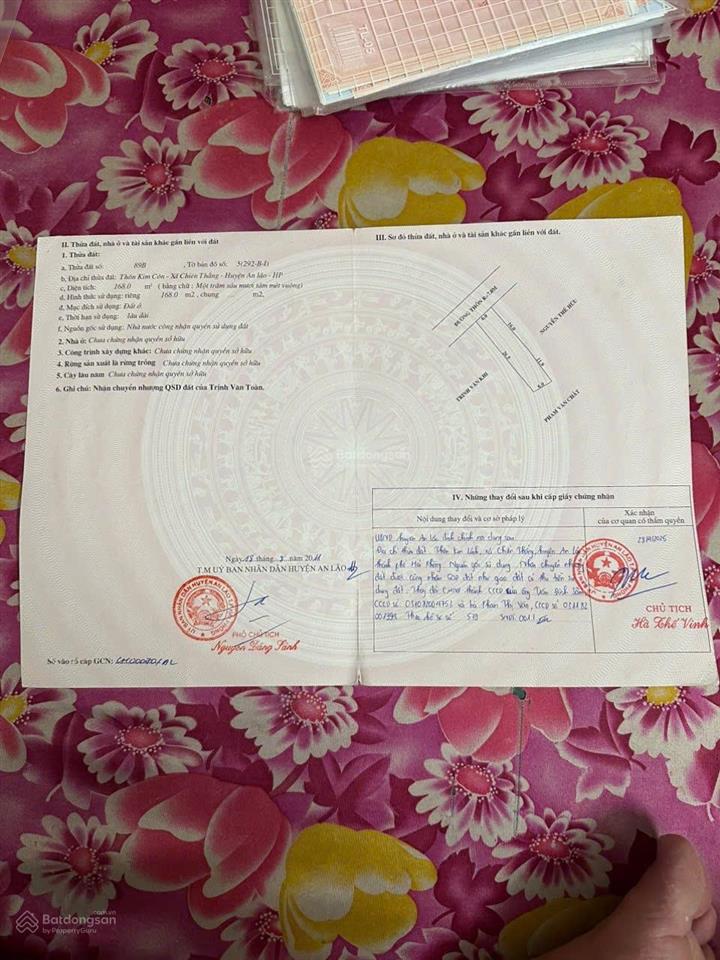 II. Thửa đất, nhà ở và tài sản khác gắn liền với đất
1. Thửa đất:
a. Thửa đất số: 89B , Tờ bản đồ số: 5(292-B-I)
b. Địa chỉ thửa đất: Thôn Kim Côn - Xã Chiến Thắng - Huyện An lão - HP
c. Diện tích: 168.0 m² ( bằng chữ : Một trăm sáu mươi tám mét vuông)
d. Hình thức sử dụng: riêng 168.0 m2 , chung m2,
đ. Mục đích sử dụng: Đất ở
e. Thời hạn sử dụng: lâu dài
f. Nguồn gốc sử dụng: Nhà nước công nhận quyền sử dụng đất
2. Nhà ở: Chưa chứng nhận quyền sở hữu
3. Công trình xây dựng khác: Chưa chứng nhận quyền sở hữu
4. Rừng sản xuất là rừng trồng Chưa chứng nhận quyền sở hữu
5. Cây lâu năm Chưa chứng nhận quyền sở hữu
6. Ghi chú: Nhận chuyển nhượng QSD đất của Trịnh Văn Toàn.
Ngày 18 tháng 3 năm 2011
T.M UỶ BAN NHÂN DÂN HUYỆN AN LÃO
PHÓ CHỦ TỊCH
Nguyễn Đăng Sánh
Số vào sổ cấp GCN:
III. Sơ đồ thửa đất, nhà ở và tài sản khác gắn liền với đất.
ĐƯỜNG THÔN R=7.0M
6.0
NGUYỄN THẾ HỮU
TRỊNH VĂN KHI
6.0
PHẠM VĂN CHẤT
IV. Những thay đổi sau khi cấp giấy chứng nhận
Nội dung thay đổi và cơ sở pháp lý
Xác nhận
của cơ quan có thẩm quyền
UBND huyện An Lão đính chính nội dung sau
Địa chỉ thửa đất: Thôn Kim Côn, xã Chiến Thắng, huyện An Lão
thành phố Hải Phòng. Nguồn gốc sử dụng: Nhận chuyển nhượng
đất được công nhận QSD đất như giao đất có thu tiền sử
dụng đất. Thay đổi CMND thành CCCD của ông
CCCD số và bà Phạm Thị CCCD số
CHỦ TỊCH
Hà Thế Vinh
Batdongsan
Batdongsan
by PropertyGuru